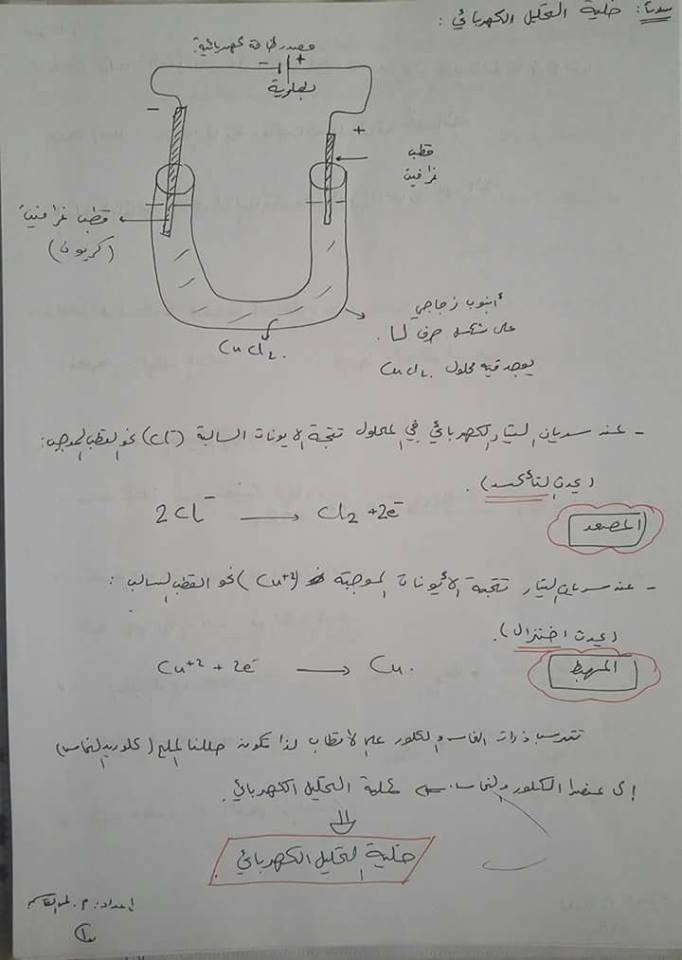 سادساً: خلية التحليل الكهربائي:
مصدر طاقة كهربائية
- +
بطارية
-
+
قطب
غرافيت
قطب غرافيت
(كربون)
أنبوب زجاجي
على شكل حرف U
CuCl2.
يوجد فيه محلول CuCl2.
- عند سريان التيار الكهربائي في المحلول تتجه الايونات السالبة (Cl-) نحو القطب الموجب:
(يحدث التأكسد).
2Cl- → Cl2 + 2e-
المصعد
- عند سريان التيار تتجه الأيونات الموجبة (Cu+2) نحو القطب السالب:
(يحدث اختزال).
Cu+2 + 2e- → Cu.
المهبط
تترسب ذرات النحاس والكلور على الأقطاب لذا تكون حللنا الملح (كلوريد النحاس)
إلى عنصرا الكلور والنحاس. عملية التحليل الكهربائي.
خلية التحليل الكهربائي.
إعداد: م.